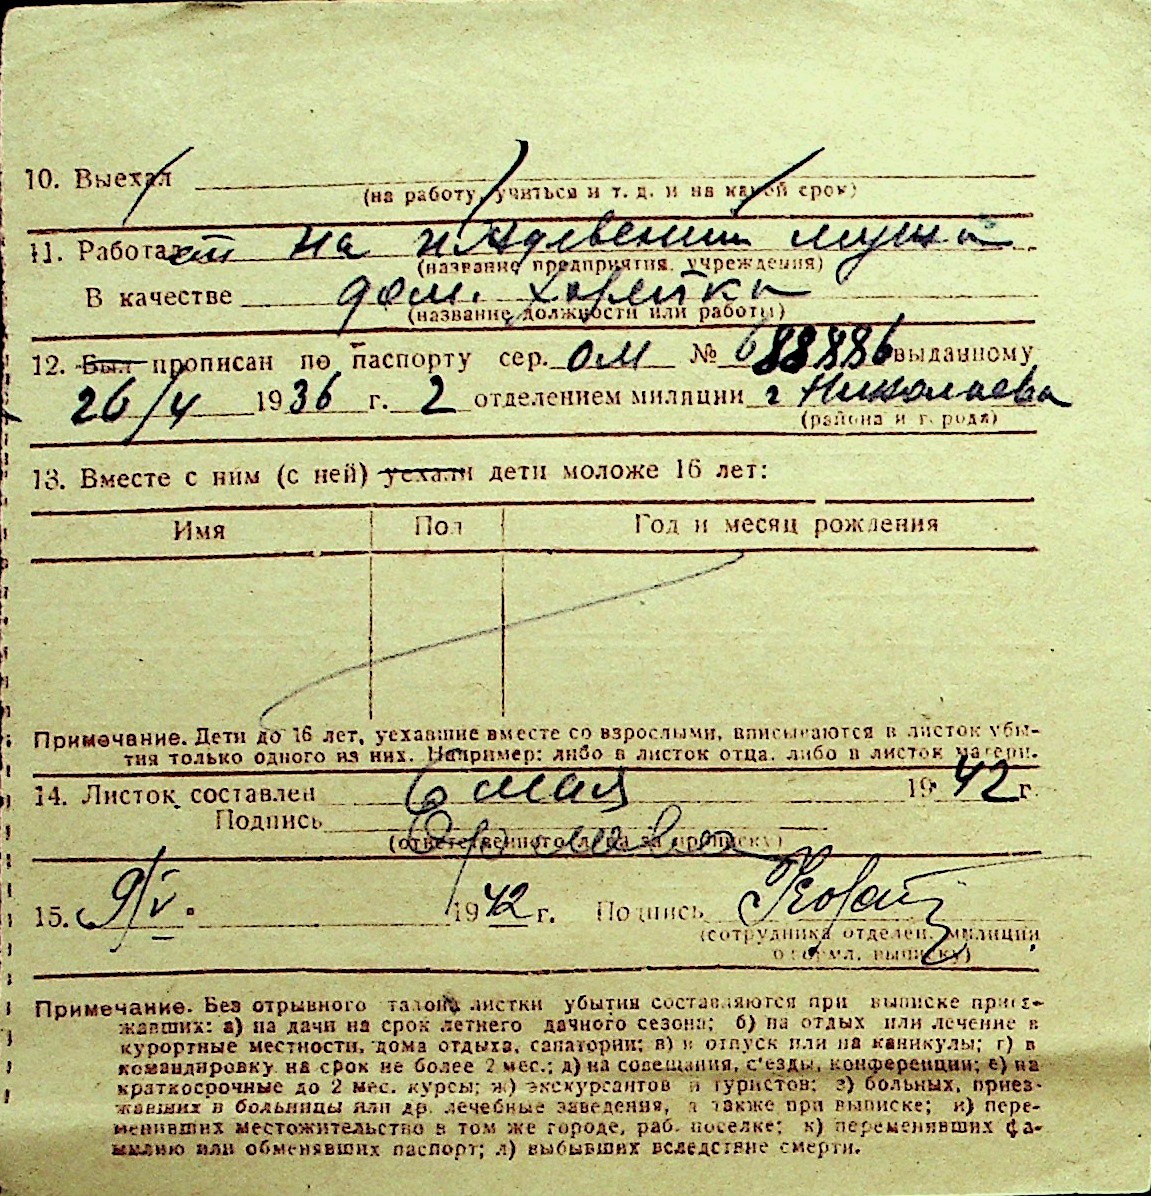 10. Выехал
(на работу, учиться и т. д. и на какой срок)
11. Работает на иждевении мужа
(название предприятия, учреждения)
В качестве дом. хозяйки
(название должности или работы)
12. Был прописан по паспорту сер. ОМ № 688886 выданному
26/4 1936 г. 2 отделением милиции г Николаева
(района и города)
13. Вместе с ним (с ней) уехали дети моложе 16 лет:
Имя Пол Год и месяц рождения
Примечание. Дети до 16 лет, уехавшие вместе со взрослыми, вписываются в листок убы-
тия только одного из них. Например: либо в листок отца, либо в листок матери.
14. Листок составлен 6 мая 1942 г.
Подпись
(ответственного лица за прописку)
15. 9/V. 1942 г. Подпись
(сотрудника отделен. милиции
оформл. выписку)
Примечание. Без отрывного талона листки убытия составляются при выписке приез-
жавших: а) на дачи на срок летнего дачного сезона; б) на отдых или лечение в
курортные местности, дома отдыха, санатории; в) в отпуск или на каникулы; г) в
командировку на срок не более 2 мес.; д) на совещания, с'езды, конференции; е) на
краткосрочные до 2 мес. курсы; ж) экскурсантов и туристов; з) больных, приез-
жавших в больницы или др. лечебные заведения, а также при выписке; и) пере-
менивших местожительство в том же городе, раб. поселке; к) переменявших фа-
милию или обменявших паспорт; л) выбывших вследствие смерти.